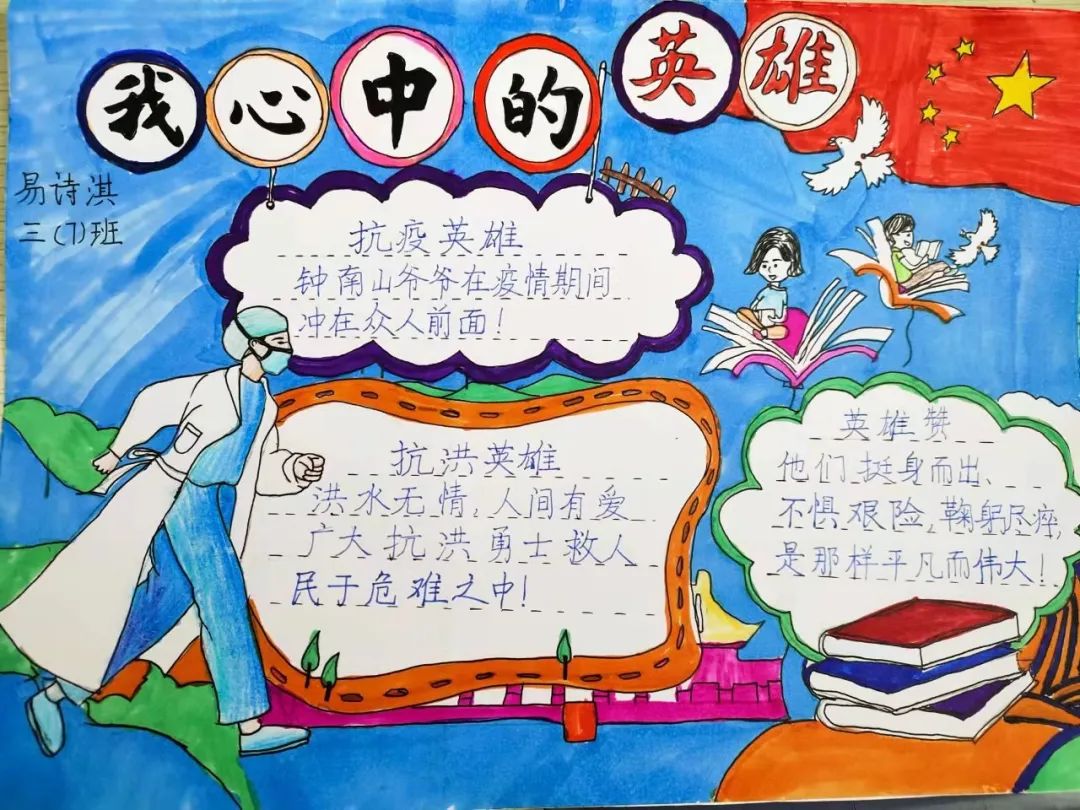 我心中的英雄
易诗淇
三(7)班
抗疫英雄
钟南山爷爷在疫情期间
冲在众人前面!
抗洪英雄
洪水无情,人间有爱
广大抗洪勇士救人
民于危难之中!
英雄赞
他们挺身而出、
不惧艰险,鞠躬尽瘁,
是那样平凡而伟大!